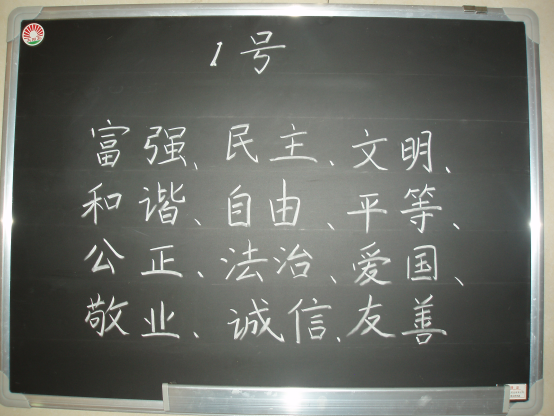 1号
富强、民主、文明、
和谐、自由、平等、
公正、法治、爱国、
敬业、诚信、友善